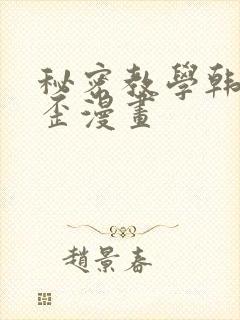 秘密教學韩
歪漫畫
趙景春